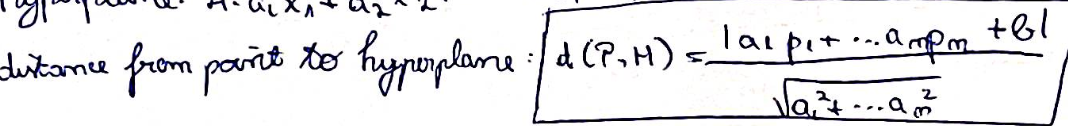 H: a₁x₁ + a₂x₂
distance from point to hyperplane: d(P,H) = |a₁p₁+...aₙpₙ +b| / √(a₁²+...aₙ²)